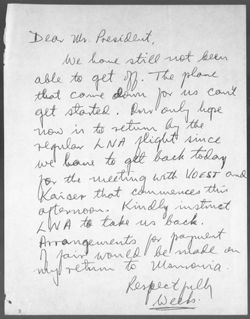 Dear Mr. President,
We have still not been
able to get off. The plane
that came down for us can't
get started. Our only hope
now is to return by the
regular LNA flight since
we have to get back today
for the meeting with VOEST and
Kaiser that commences this
afternoon. Kindly instruct
LNA to take us back.
Arrangements for payment
of fair would be made on
my return to Monrovia.
Respectfully
Weeks.